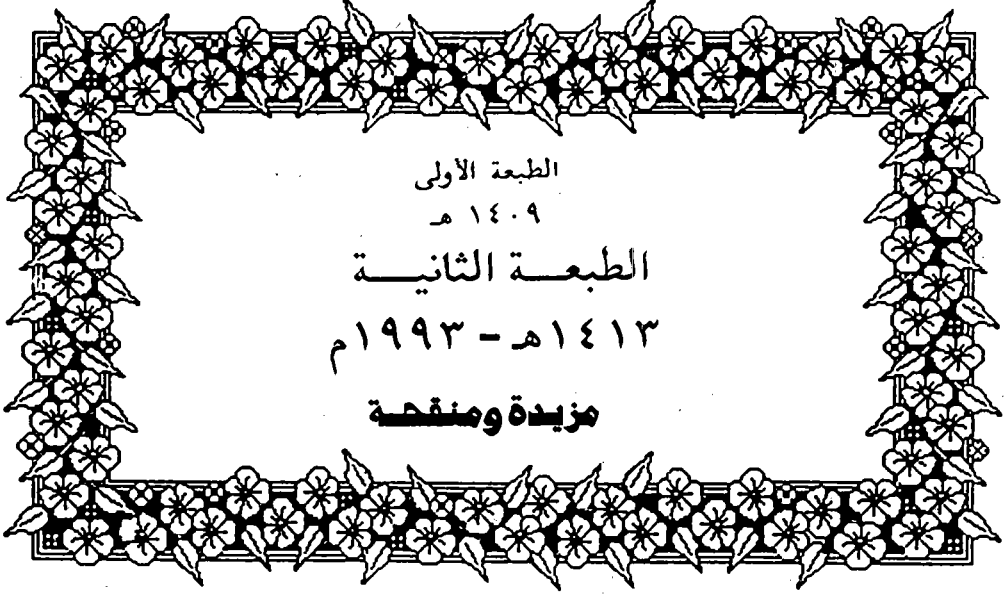 الطبعة الأولى
١٤٠٩ هـ
الطبعـــة الثانيـــة
١٤١٣هـ - ١٩٩٣م
مزيدة ومنقحـة